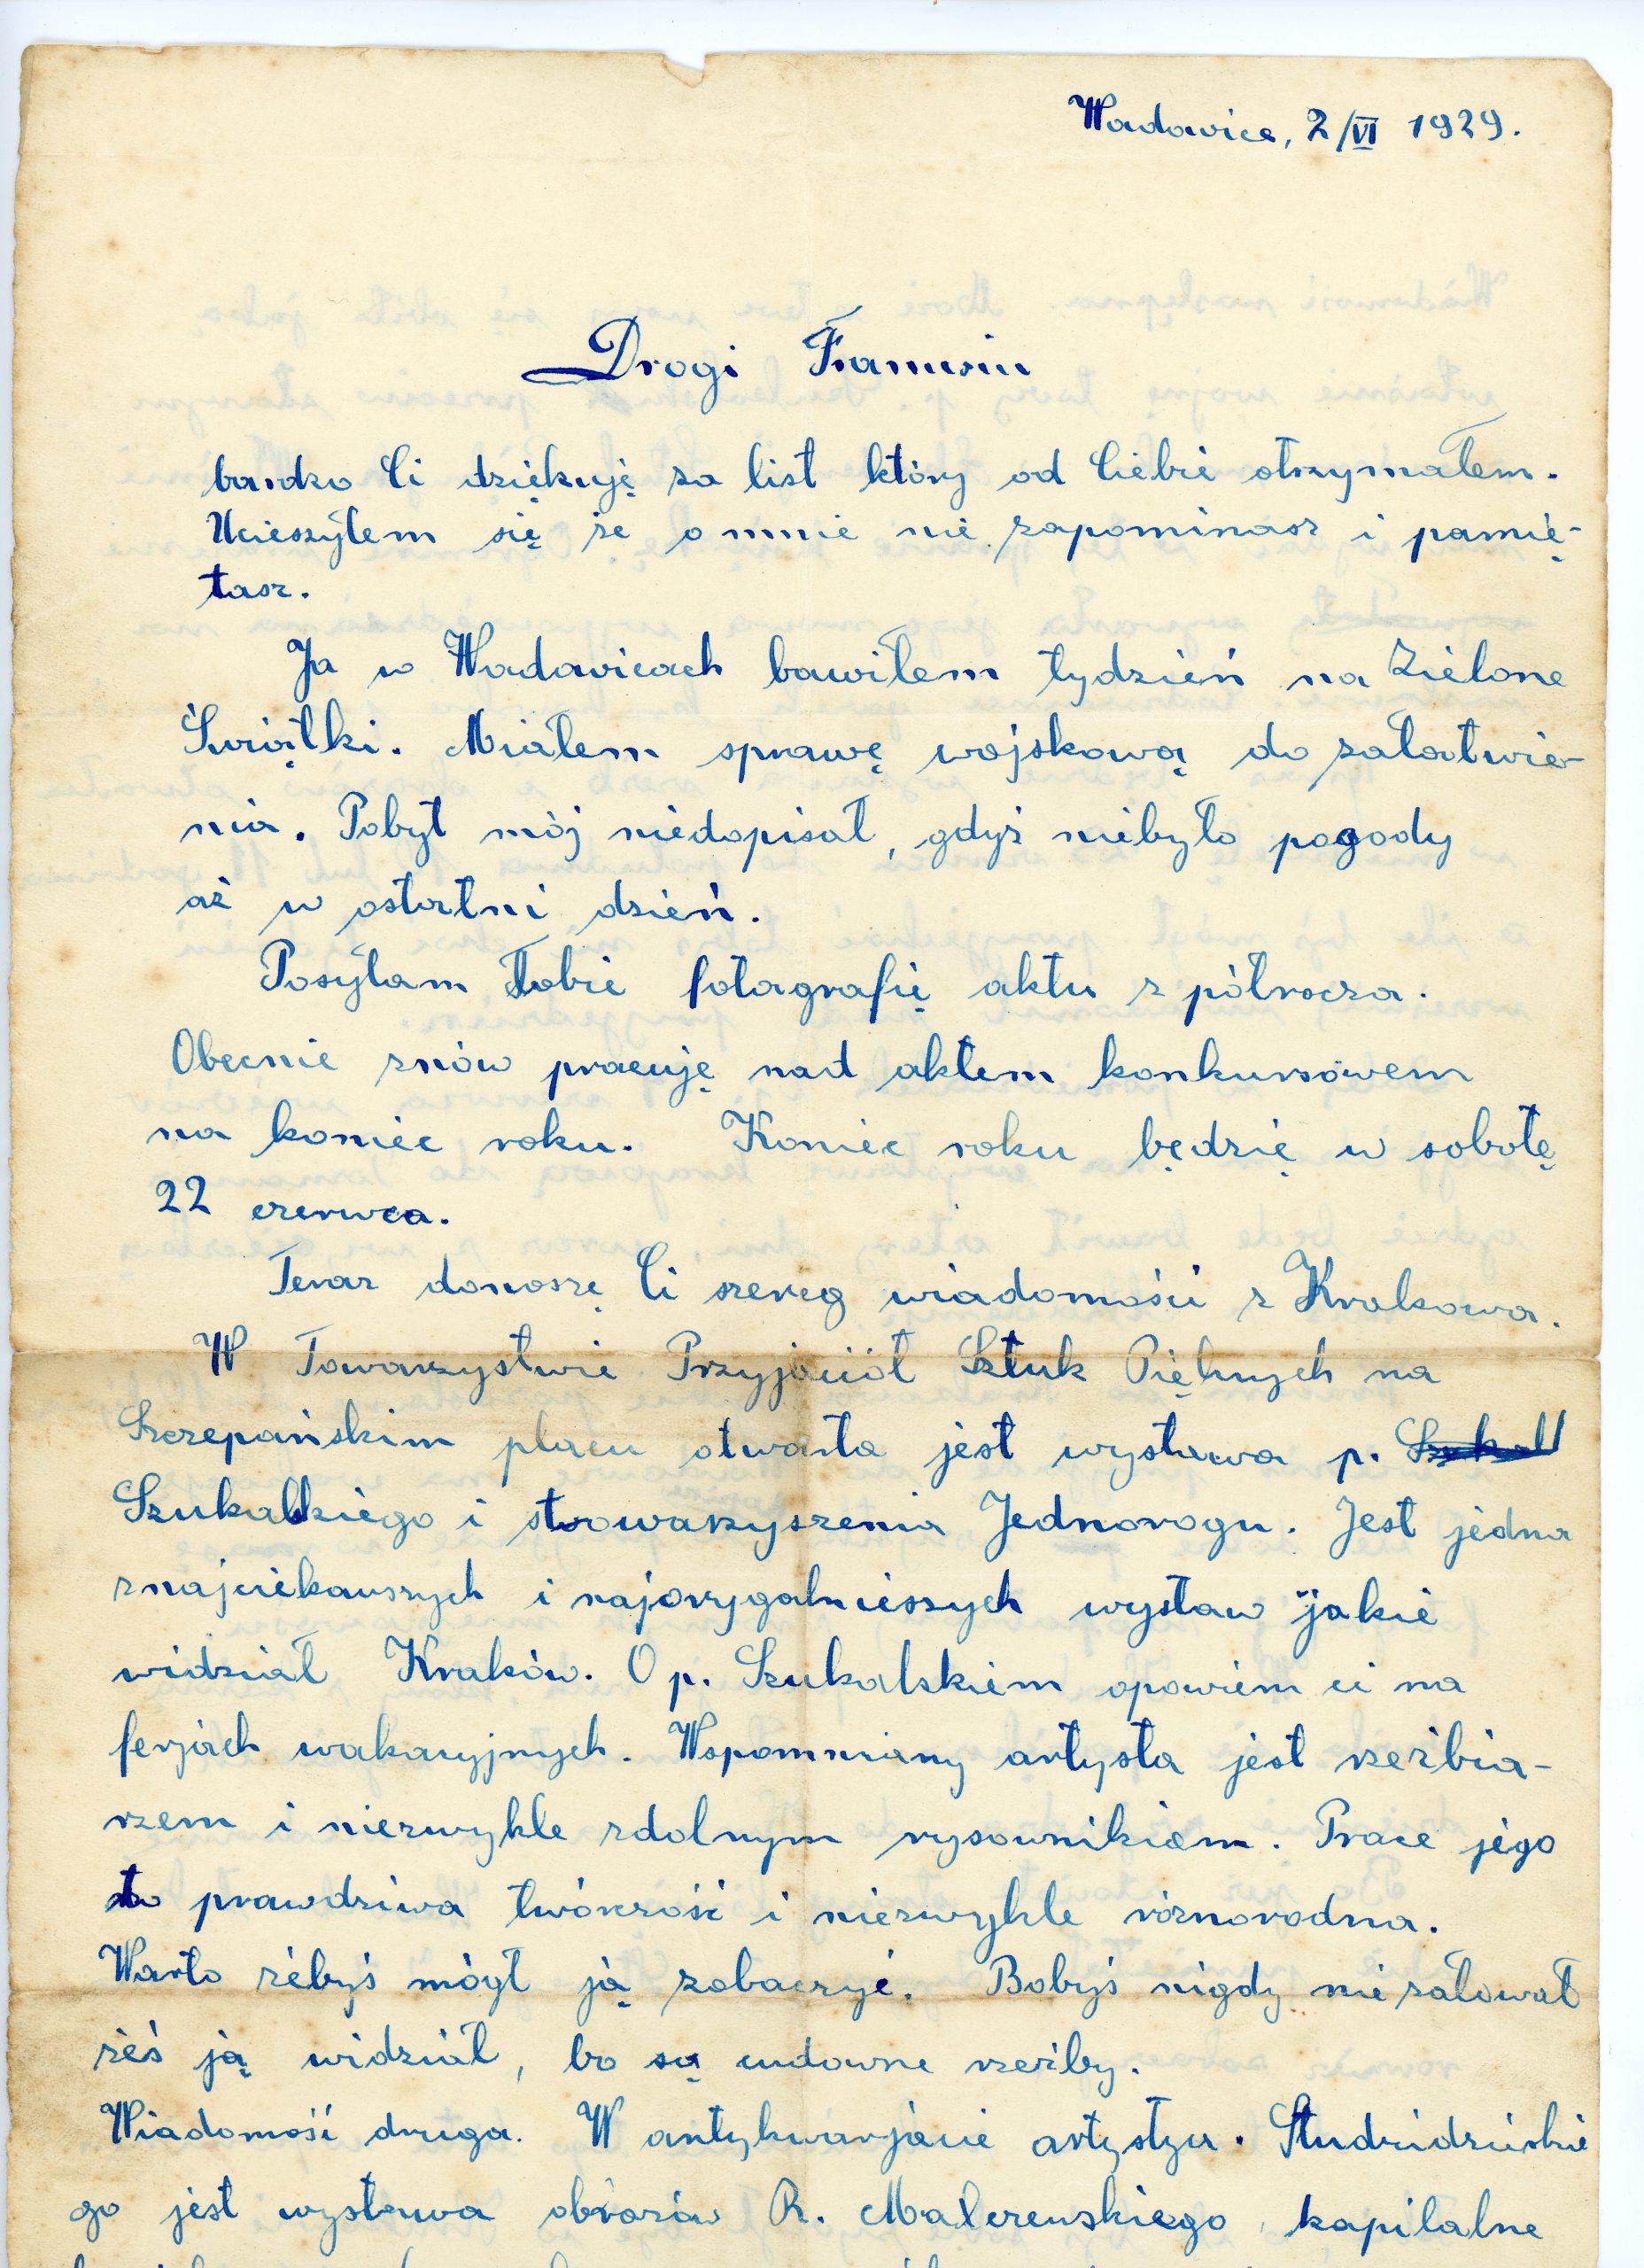 Wadowice, 2/VI 1929.
Drogi Franusiu
bardzo Ci dziękuję za list który od Ciebie otrzymałem.
Ucieszyłem się że o mnie nie zapominasz i pamię-
tasz.
Ja w Wadowicach bawiłem tydzień na Zielone
Świątki. Miałem sprawę wojskową do załatwie-
nia. Pobyt mój niedopisał, gdyż niebyło pogody
aż w ostatni dzień.
Posyłam Tobie fotografię aktu z półrocza.
Obecnie znów pracuję nad aktem konkursowem
na koniec roku. Koniec roku będzię w sobotę
22 czerwca.
Teraz donoszę Ci szereg wiadomości z Krakowa.
W Towarzystwie Przyjaciół Sztuk Pięknych na
Szczepańskim placu otwarta jest wystawa p. Szukal
Szukalskiego i stowarzyszenia Jednorogu. Jest jedna
z najciekawszych i najorygalnieszych wystaw jakie
widział Kraków. O p. Szukalskiem opowiem ci na
ferjach wakacyjnych. Wspomniany artysta jest rzeźbia-
rzem i niezwykle zdolnym rysownikiem. Prace jego
to prawdziwa twórczość i niezwykle różnorodna.
Warto żebyś mógł ją zobaczyć. Bobyś nigdy nie żałował
żeś ją widział, bo są cudowne rzeźby.
Wiadomość druga. W antykwarjacie artysty.
go jest wystawa obrazów R. Malczewskiego, kapitalne